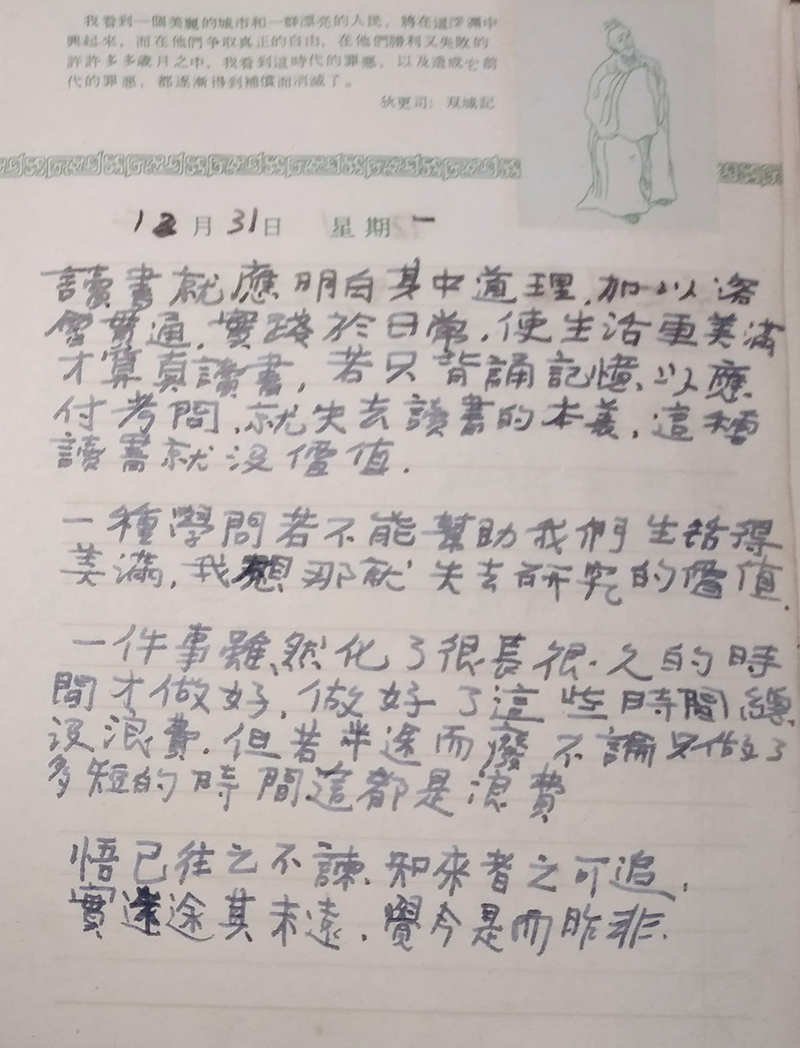 我看到一個美麗的城市和一群漂亮的人民，將在這深淵中
興起來，而在他們爭取真正的自由，在他們勝利又失敗的
許許多多歲月之中，我看到這時代的罪惡，以及造成它前
代的罪惡，都逐漸得到補償而消滅了。
狄更司：双城記
12月31日 星期一
讀書就應明白其中道理，加以溶
會貫通，實踐於日常，使生活更美滿
才算真讀書，若只背誦記憶，以應
付考問，就失去讀書的本義，這種
讀書就沒價值．
一種學問若不能幫助我們生活得
美滿，我想那就失去研究的價值．
一件事雖然化了很長很久的時
間才做好，做好了這些時間總
沒浪費，但若半途而廢不論只做了
多短的時間這都是浪費
悟已往之不諫，知來者之可追，
實迷途其未遠，覺今是而昨非．